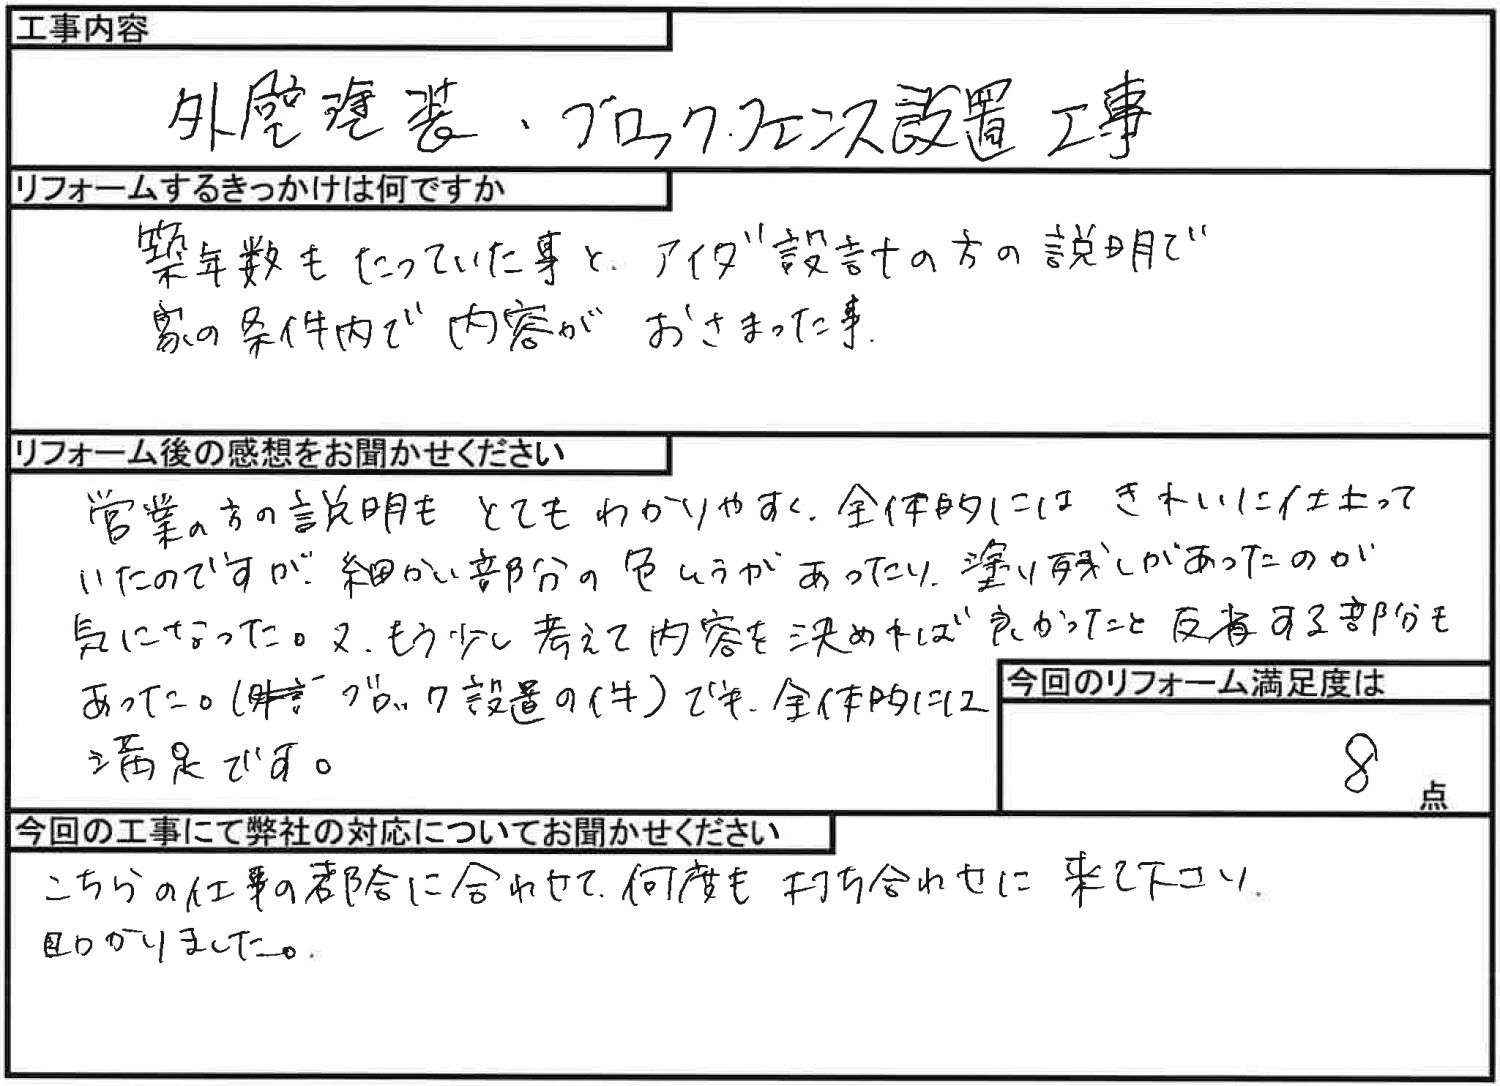 工事内容
外壁塗装・ブロック.フェンス設置工事
リフォームするきっかけは何ですか
築年数もたっていた事と、アイダ設計の方の説明で
家の条件内で内容がおさまった事.
リフォーム後の感想をお聞かせください
営業の方の説明もとてもわかりやすく、全体的にはきれいに仕上って
いたのですが、細かい部分の色むらがあったり、塗り残しがあったのが
気になった。又、もう少し考えて内容を決めれば良かったと反省する部分も
あった。(ブロック設置の件)でも、全体的には
満足です。
今回のリフォーム満足度は
8点
今回の工事にて弊社の対応についてお聞かせください
こちらの仕事の都合に合わせて、何度も打ち合わせに来て下さり、
助かりました。